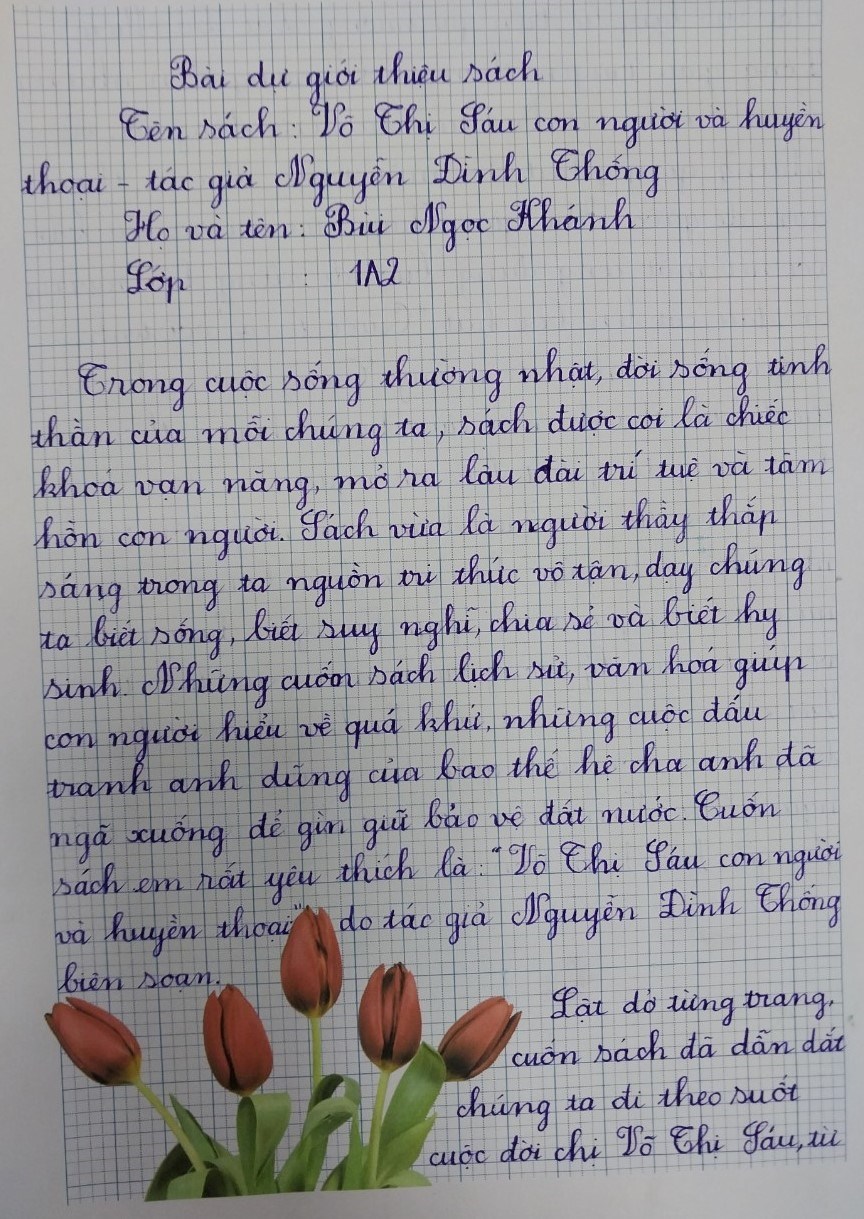 Bài dự giới thiệu sách
Tên sách: Võ Thị Sáu con người và huyền
thoại - tác giả Nguyễn Đình Thống
Họ và tên: Bùi Ngọc Khánh
Lớp : 1A2
Trong cuộc sống thường nhật, đời sống tinh
thần của mỗi chúng ta, sách được coi là chiếc
khoá vạn năng, mở ra lâu đài trí tuệ và tâm
hồn con người. Sách vừa là người thầy thắp
sáng trong ta nguồn tri thức vô tận, dạy chúng
ta biết sống, biết suy nghĩ, chia sẻ và biết hy
sinh. Những cuốn sách lịch sử, văn hoá giúp
con người hiểu về quá khứ, những cuộc đấu
tranh anh dũng của bao thế hệ cha anh đã
ngã xuống để gìn giữ bảo vệ đất nước. Cuốn
sách em rất yêu thích là: "Võ Thị Sáu con người
và huyền thoại" do tác giả Nguyễn Đình Thống
biên soạn.
Lật dở từng trang,
cuốn sách đã dẫn dắt
chúng ta đi theo suốt
cuộc đời chị Võ Thị Sáu, từ